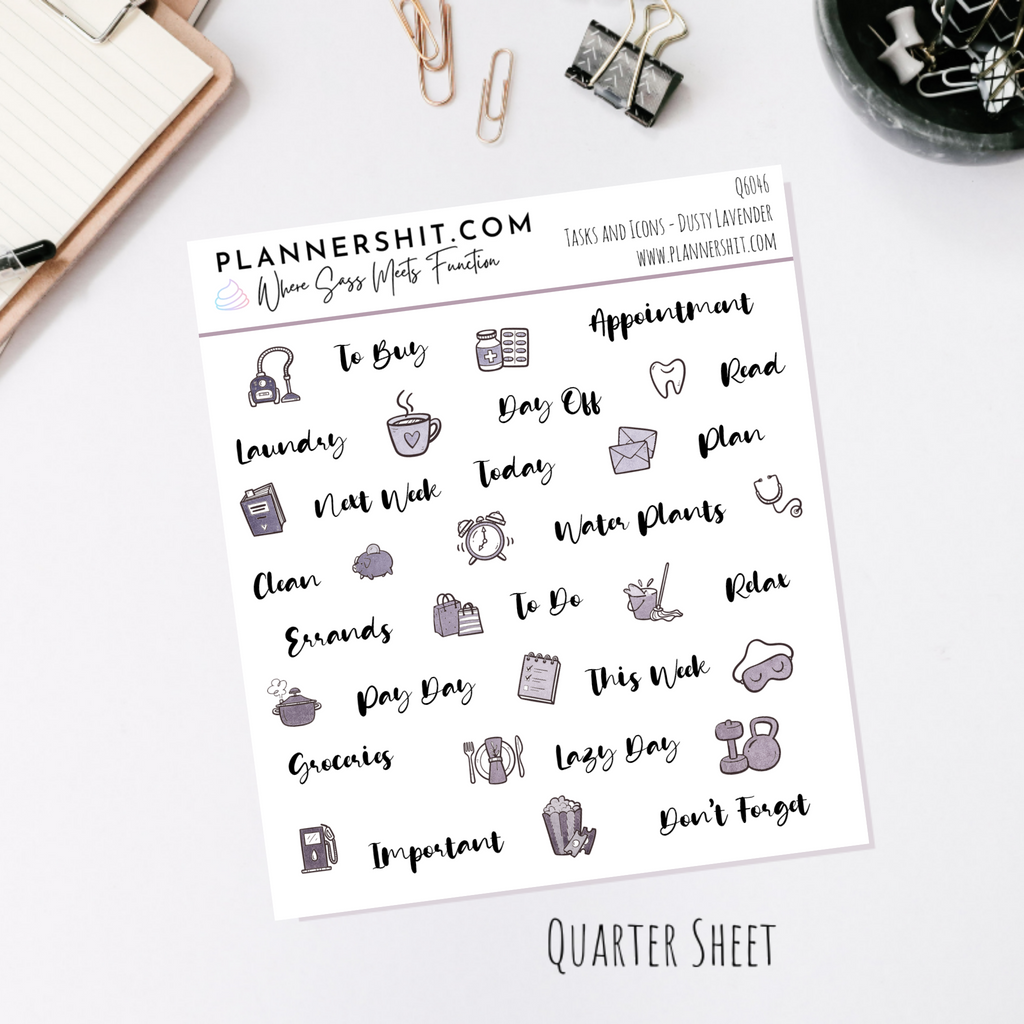 PLANNERSHIT.COM
Where Sass Meets Function
Q6046
Tasks and Icons - Dusty Lavender
www.plannershit.com
To Buy
Appointment
Laundry
Day Off
Read
Next Week
Today
Plan
Clean
Water Plants
Errands
To Do
Relax
Pay Day
This Week
Groceries
Lazy Day
Important
Don't Forget
Quarter Sheet